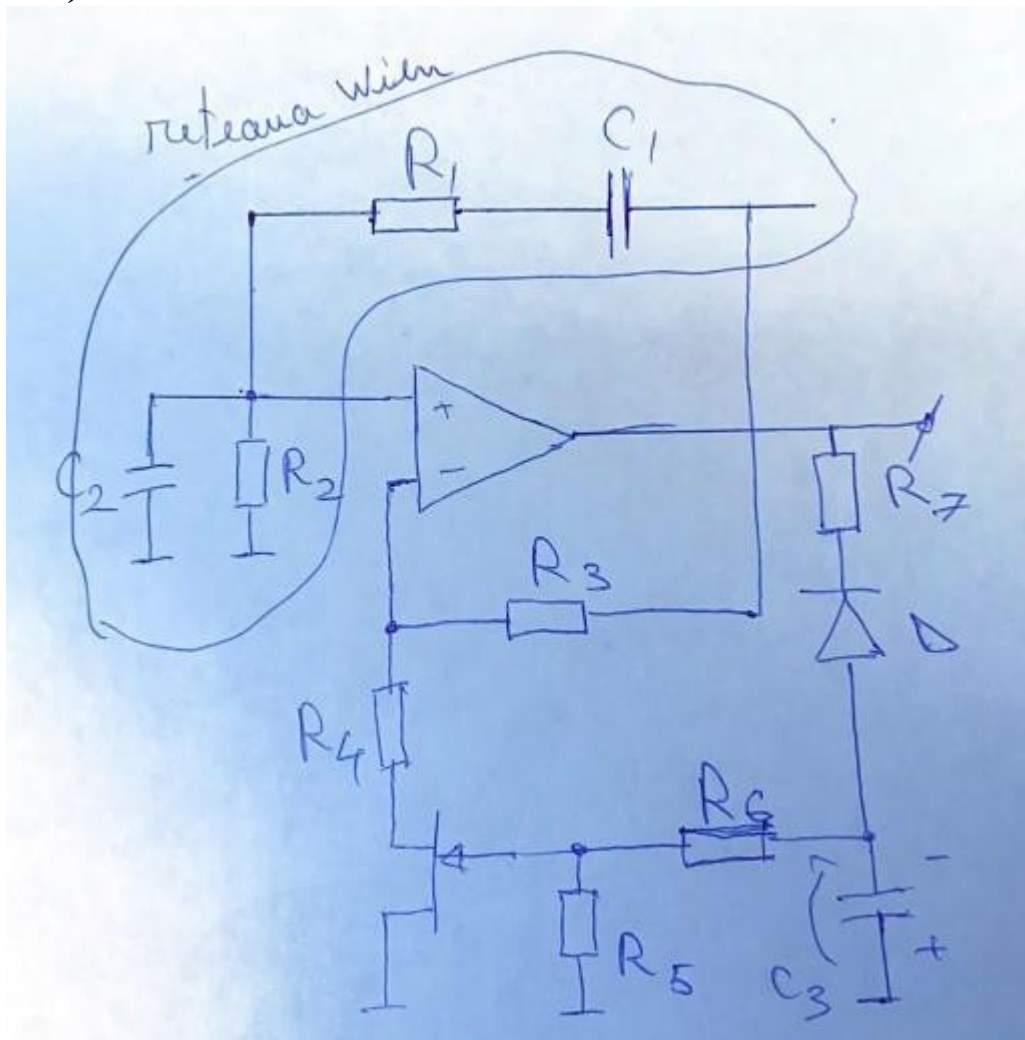 reteaua Wien
R1
C1
+
-
C2
R2
R7
R3
D
R4
R6
-
+
R5
C3